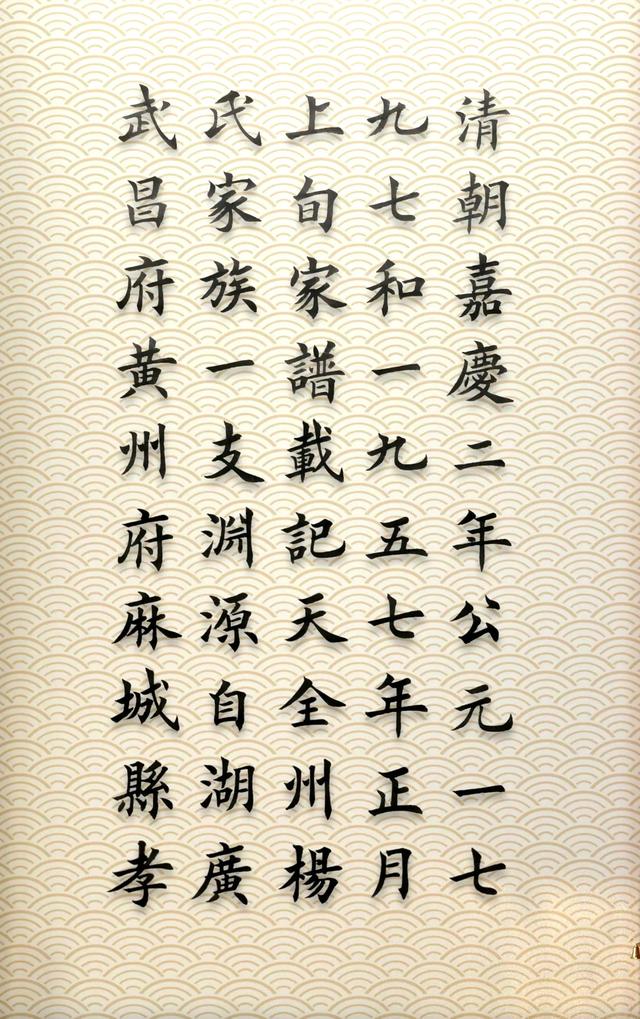 清朝嘉慶二年公元一七
九七和一九五七年正月
上旬家譜載記天全州楊
氏家族一支淵源自湖廣
武昌府黃州府麻城縣孝